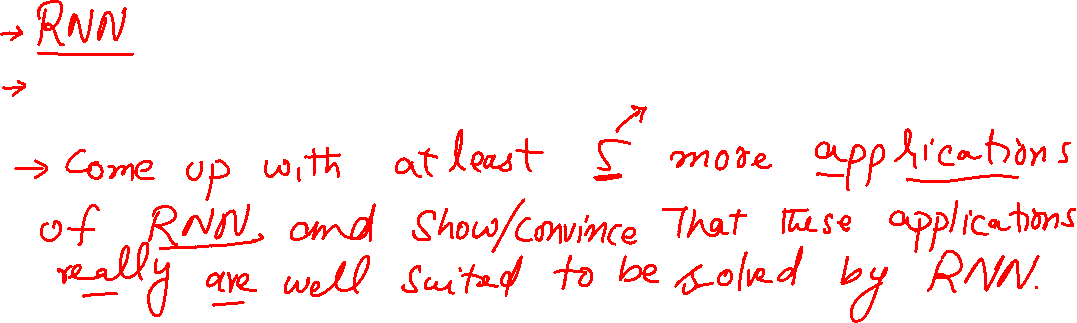 → RNN
→
→ Come up with at least 5 more applications
of RNN and Show/Convince That these applications
really are well suited to be solved by RNN.